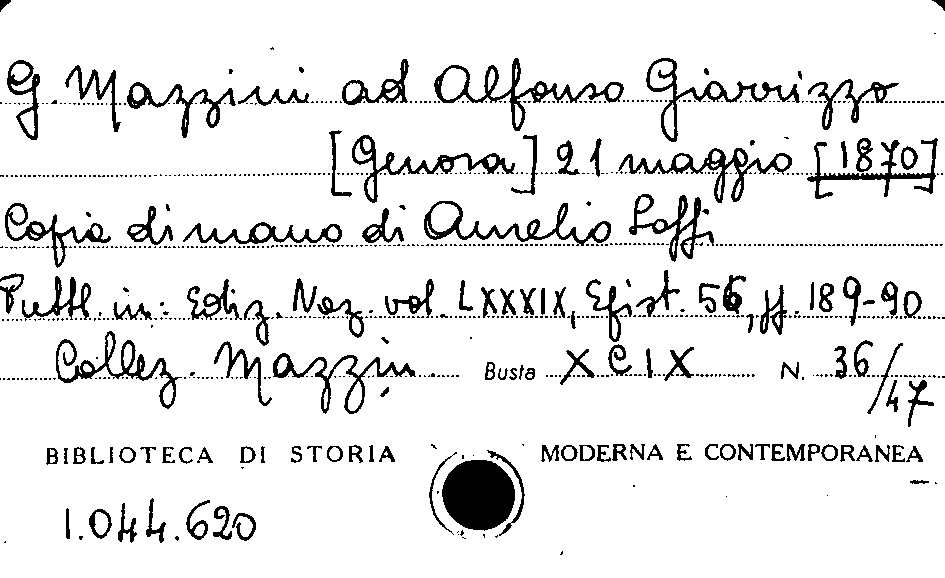 G. Mazzini ad Alfonso Giarrizzo
[Genova] 21 maggio [1870]
Copia di mano di Aurelio Saffi
Pubbl. in: Ediz. Naz. vol. LXXXIX, Epist. 56, pp. 189-90
Collez. Mazzin. Busta XCIX N. 36/47
BIBLIOTECA DI STORIA MODERNA E CONTEMPORANEA
1.044.620